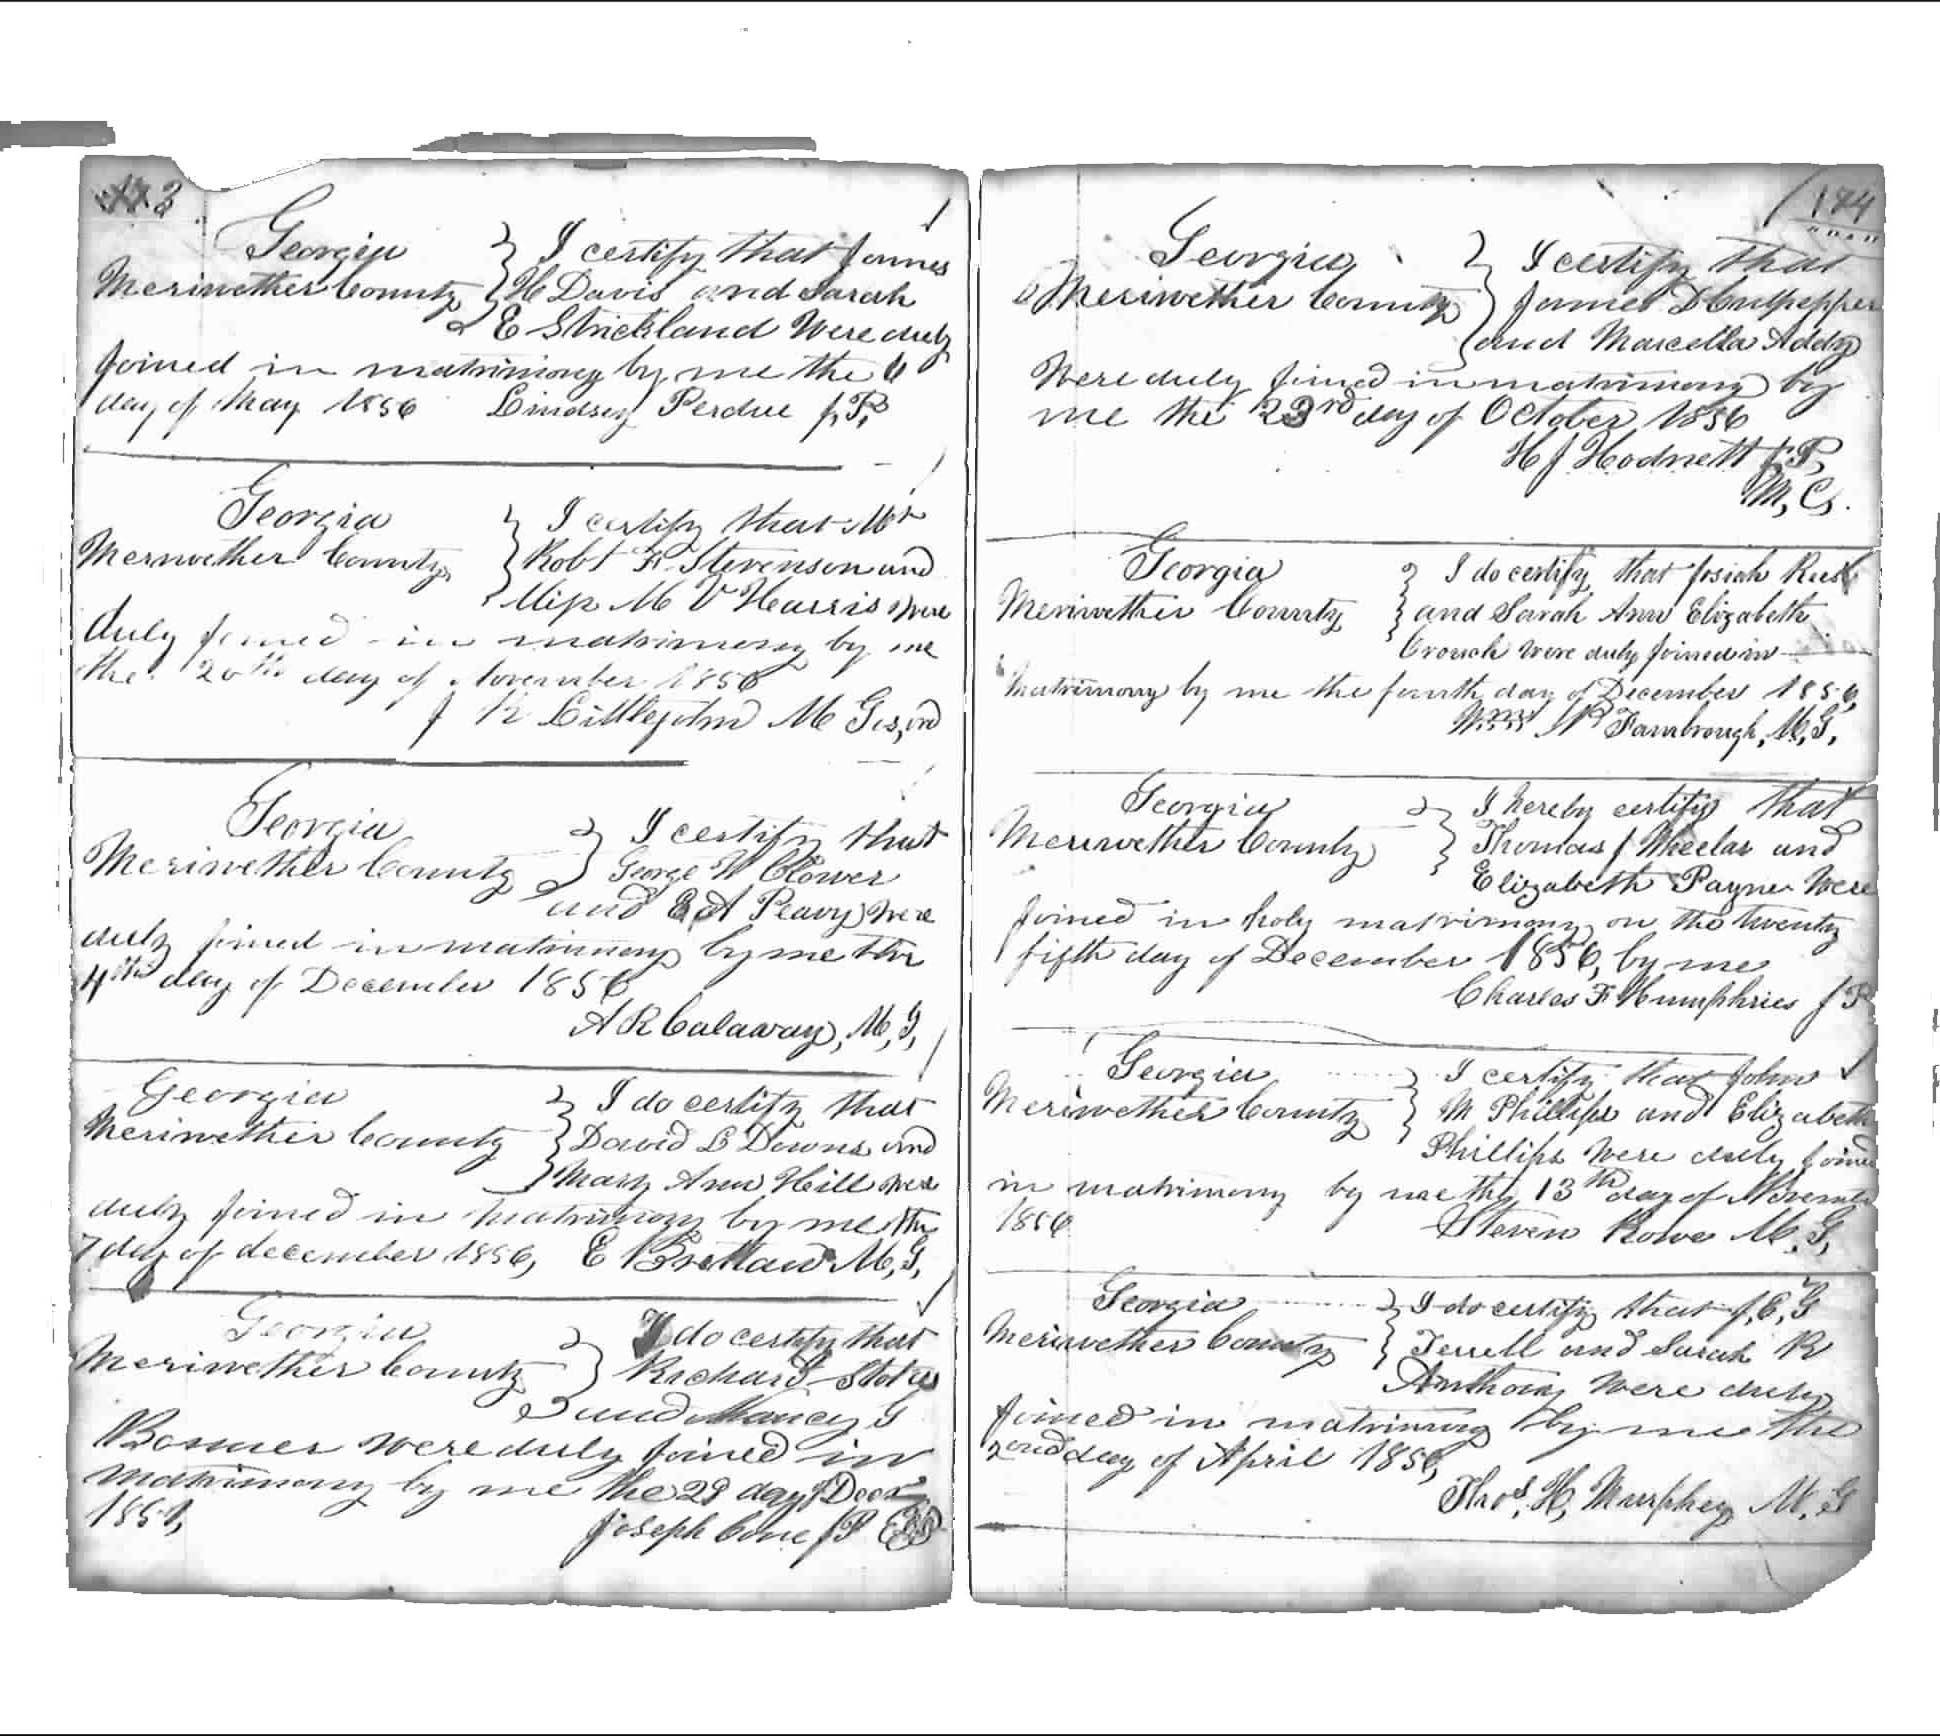 Georgia } I certify that James
Meriwether County } H Davis and Sarah
E Strickland Were duly
joined in matrimony by me the 6
day of May 1856 Lindsey Perdue J.P.
Georgia } I certify that Mr
Meriwether County } Robt F. Stevenson and
Miss M V Harris were
duly joined in matrimony by me
the 20th day of November 1856
Littlejohn M G
Georgia } I certify that
Meriwether County } George W Clower
and E A Peavy were
duly joined in matrimony by me the
4th day of December 1856
A R Calaway, M, G,
Georgia } I do certify that
Meriwether County } David L Downs and
Mary Ann Hill were
duly joined in matrimony by me the
7 day of december 1856, E M, G,
Georgia } I do certify that
Meriwether County } Richard Stokes
and Nancy G
Bonner were duly joined in
matrimony by me the 29 day of Decr
Joseph Cone J P
174
Georgia } I certify that
Meriwether County } James D Culpepper
and Marcella Addy
Were duly joined in matrimony by
me the 23rd day of October 1856
H J Hodnett J. P,
M, C,.
Georgia } I do certify that Josiah Rust
Meriwether County } and Sarah Ann Elizabeth
Crouch were duly joined in
matrimony by me the fourth day of December 1856,
Wm Fambrough, M, G,
Georgia } I hereby certify that
Meriwether County } Thomas J Wheelas and
Elizabeth Payne Were
joined in holy matrimony on the twenty
fifth day of December 1856, by me
Charles F Humphries J P
Georgia } I certify that John
Meriwether County } M Phillips and Elizabeth
Phillips were duly joined
in matrimony by me the 13th day of
1856 Steven Rowe M. G,
Georgia } I do certify that J, E, G
Meriwether County } Terrell and Sarah R
Anthony Were duly
joined in matrimony by me the
day of April 1856,
Thos, H, Murphey M. G